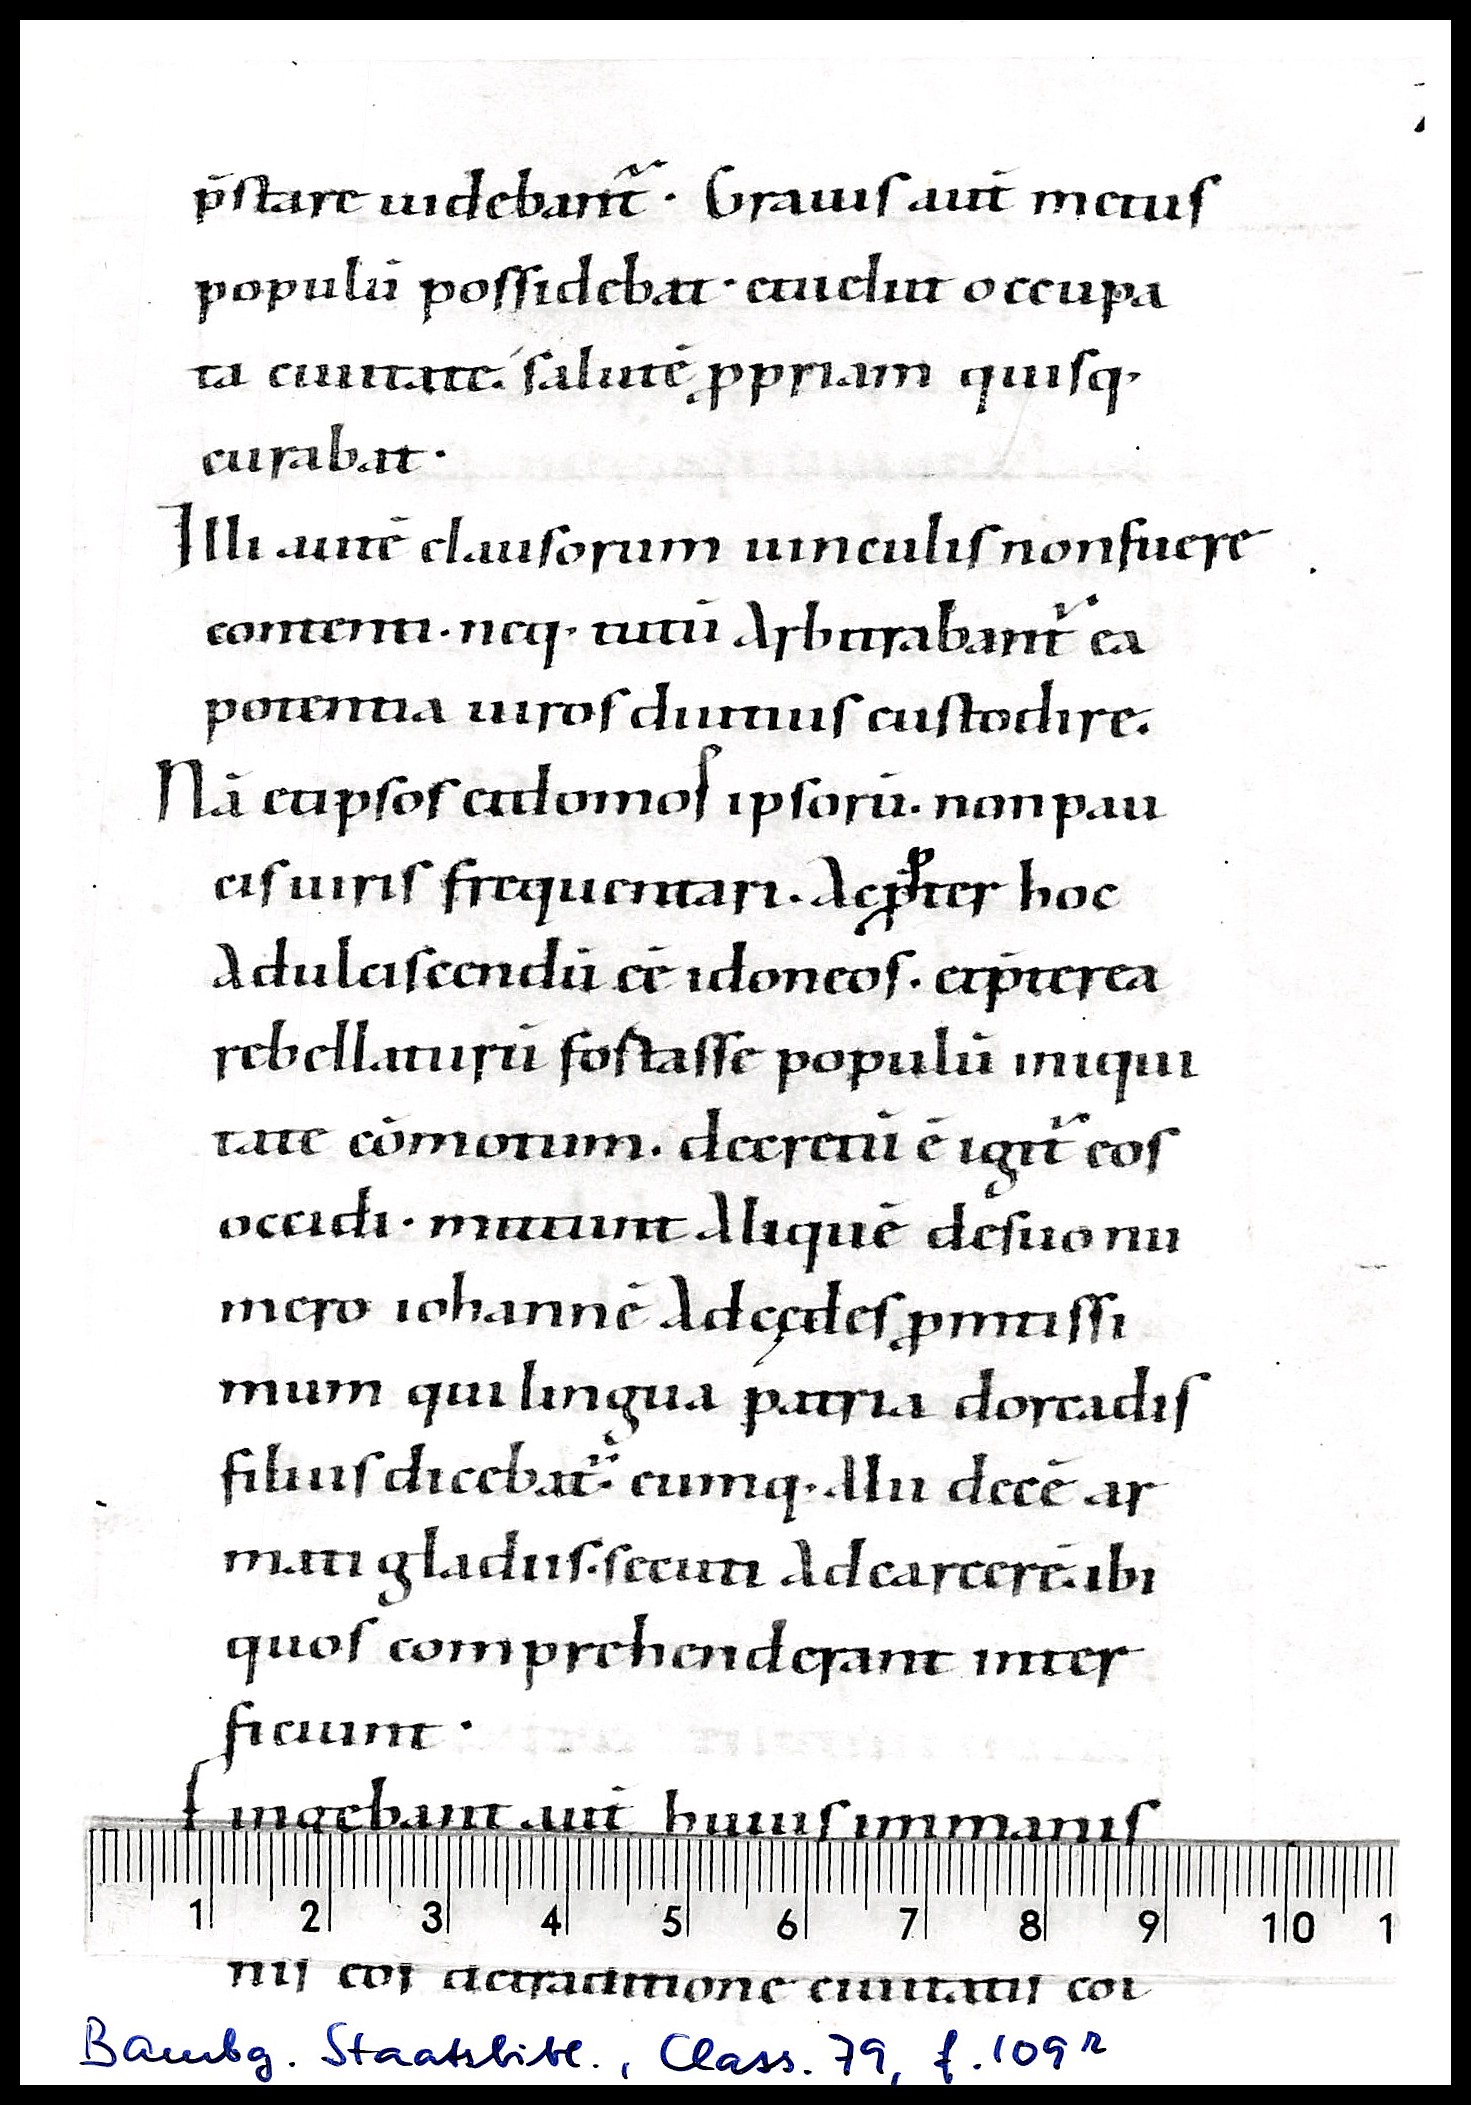 p̄stare uidebant᷑ · Grauis aut̄ metus
populū possidebat · etuelut occupa
ta ciuitate. salutē ꝓpriam quisq·
curabat ·
Illi autē clausorum uinculis nonfuere
contenti · neq· tutū Arbitrabant᷑ ea
potentia uiros diutius custodire.
Nā etipsos etdomos ipsorū. nonpau
cis uiris frequentari. Acꝓpter hoc
Adulciscendū eē idoneos. etp̄terea
rebellaturū fostasse populū iniqui
tate cōmotum. decretū ē igit᷑ eos
occidi · mittunt Aliquē desuo nu
mero iohannē Adędes ꝓmtissi
mum qui lingua patria dorcadis
filius dicebat᷑. cumq· Alii decē ar
mati gladiis. secuti Adcarcerē. ibi
quos comprehenderant inter
ficiunt ·
Fingebant aut̄ huius immanis
1 2 3 4 5 6 7 8 9 10 1
nis eos detraditione ciuitatis col
Bambg. Staatsbibl., Class. 79, f. 109r